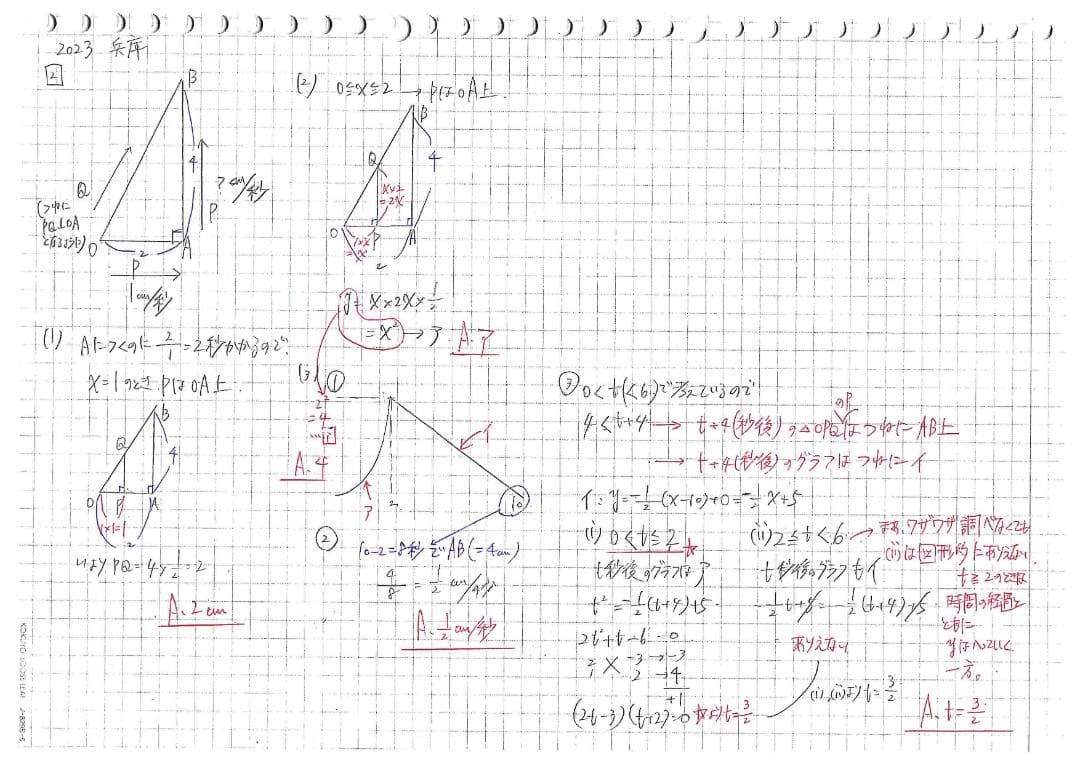 2023 兵庫
2
B
4
? cm/秒
P
Q
(つねに
PQ⊥OA
となるように)
O
2
A
P
1cm/秒
(1) Aにつくのに 2/1 = 2秒かかるので、
x=1のとき PはOA上.
B
Q
4
O
P
A
1×1=1
2
PQ=4×1/2=2
A. 2cm
(2) 0≦x≦2 → PはOA上.
B
Q
4
x×2
=2x
O
P
A
1×x
=x
2
y=x×2x×1/2
=x² → ア
A. ア
(3) ①
2²
=4
A. 4
ア
2
イ
10
②
10-2=8秒でAB(=4cm)
4/8 = 1/2 cm/秒
A. 1/2 cm/秒
③ 0<t(<6)で考えているので
のP
4<t+4 → t+4(秒後)の△OPQはつねにAB上
→ t+4(秒後)のグラフはつねにイ
イ:y=-1/2(x-10)+0=-1/2x+5
(i) 0<t≦2 ☆
t秒後のグラフはア
t²=-1/2(t+4)+5
2t²+t-6=0
2 -3 → -3
1 2 → 4
+1
(2t-3)(t+2)=0 ☆よりt=3/2
(ii) 2≦t<6
t秒後のグラフもイ
-1/2t+5=-1/2(t+4)+5
ありえない
(i),(ii)よりt=3/2
まあ、ワザワザ調べなくても
(ii)は図形的にありえない.
t≧2のときは
時間の経過と
ともに
yはへっていく
一方。
A. t=3/2
KOKUYO LOOSE-LEAF